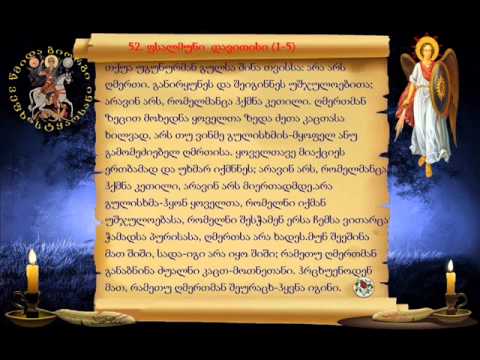 52. ფსალმუნი დავითისი (1-5)
თქუა უგუნურმან გულსა შინა თვისსა: არა არს
ღმერთი. განირყუნეს და შეიგინნეს უშჯულოებითა;
არავინ არს, რომელმანცა ჰქმნა კეთილი. ღმერთმან
ზეცით მოხედნა ყოველთა ზედა ძეთა კაცთასა
ხილვად, არს თუ ვინმე გულისხმის-მყოფელ ანუ
გამომეძიებელ ღმრთისა. ყოველთავე მიაქციეს
ერთბამად და უხმარ იქმნნეს; არავინ არს, რომელმანცა
ჰქმნა კეთილი, არავინ არს მიერთადმდე.არა
გულისხმა-ჰყონ ყოველთა, რომელნი იქმან
უშჯულოებასა, რომელნი შესჭამენ ერსა ჩემსა ვითარცა
ჭამადსა პურისასა, ღმერთსა არა ხადეს.მუნ შეეშინა
მათ შიში, სადა-იგი არა იყო შიში; რამეთუ ღმერთმან
განაბნინა ძუალნი კაცთ-მოთნეთანი. ჰრცხუენოდენ
მათ, რამეთუ ღმერთმან შეურაცხ-ჰყვნა იგინი.